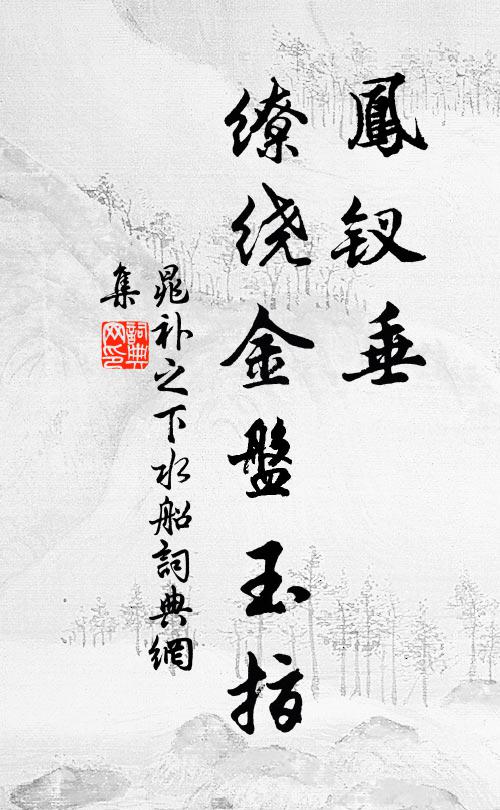 鳳钗垂
缭绕金盤玉指
晁补之下水船詞典網
集
詞典网印